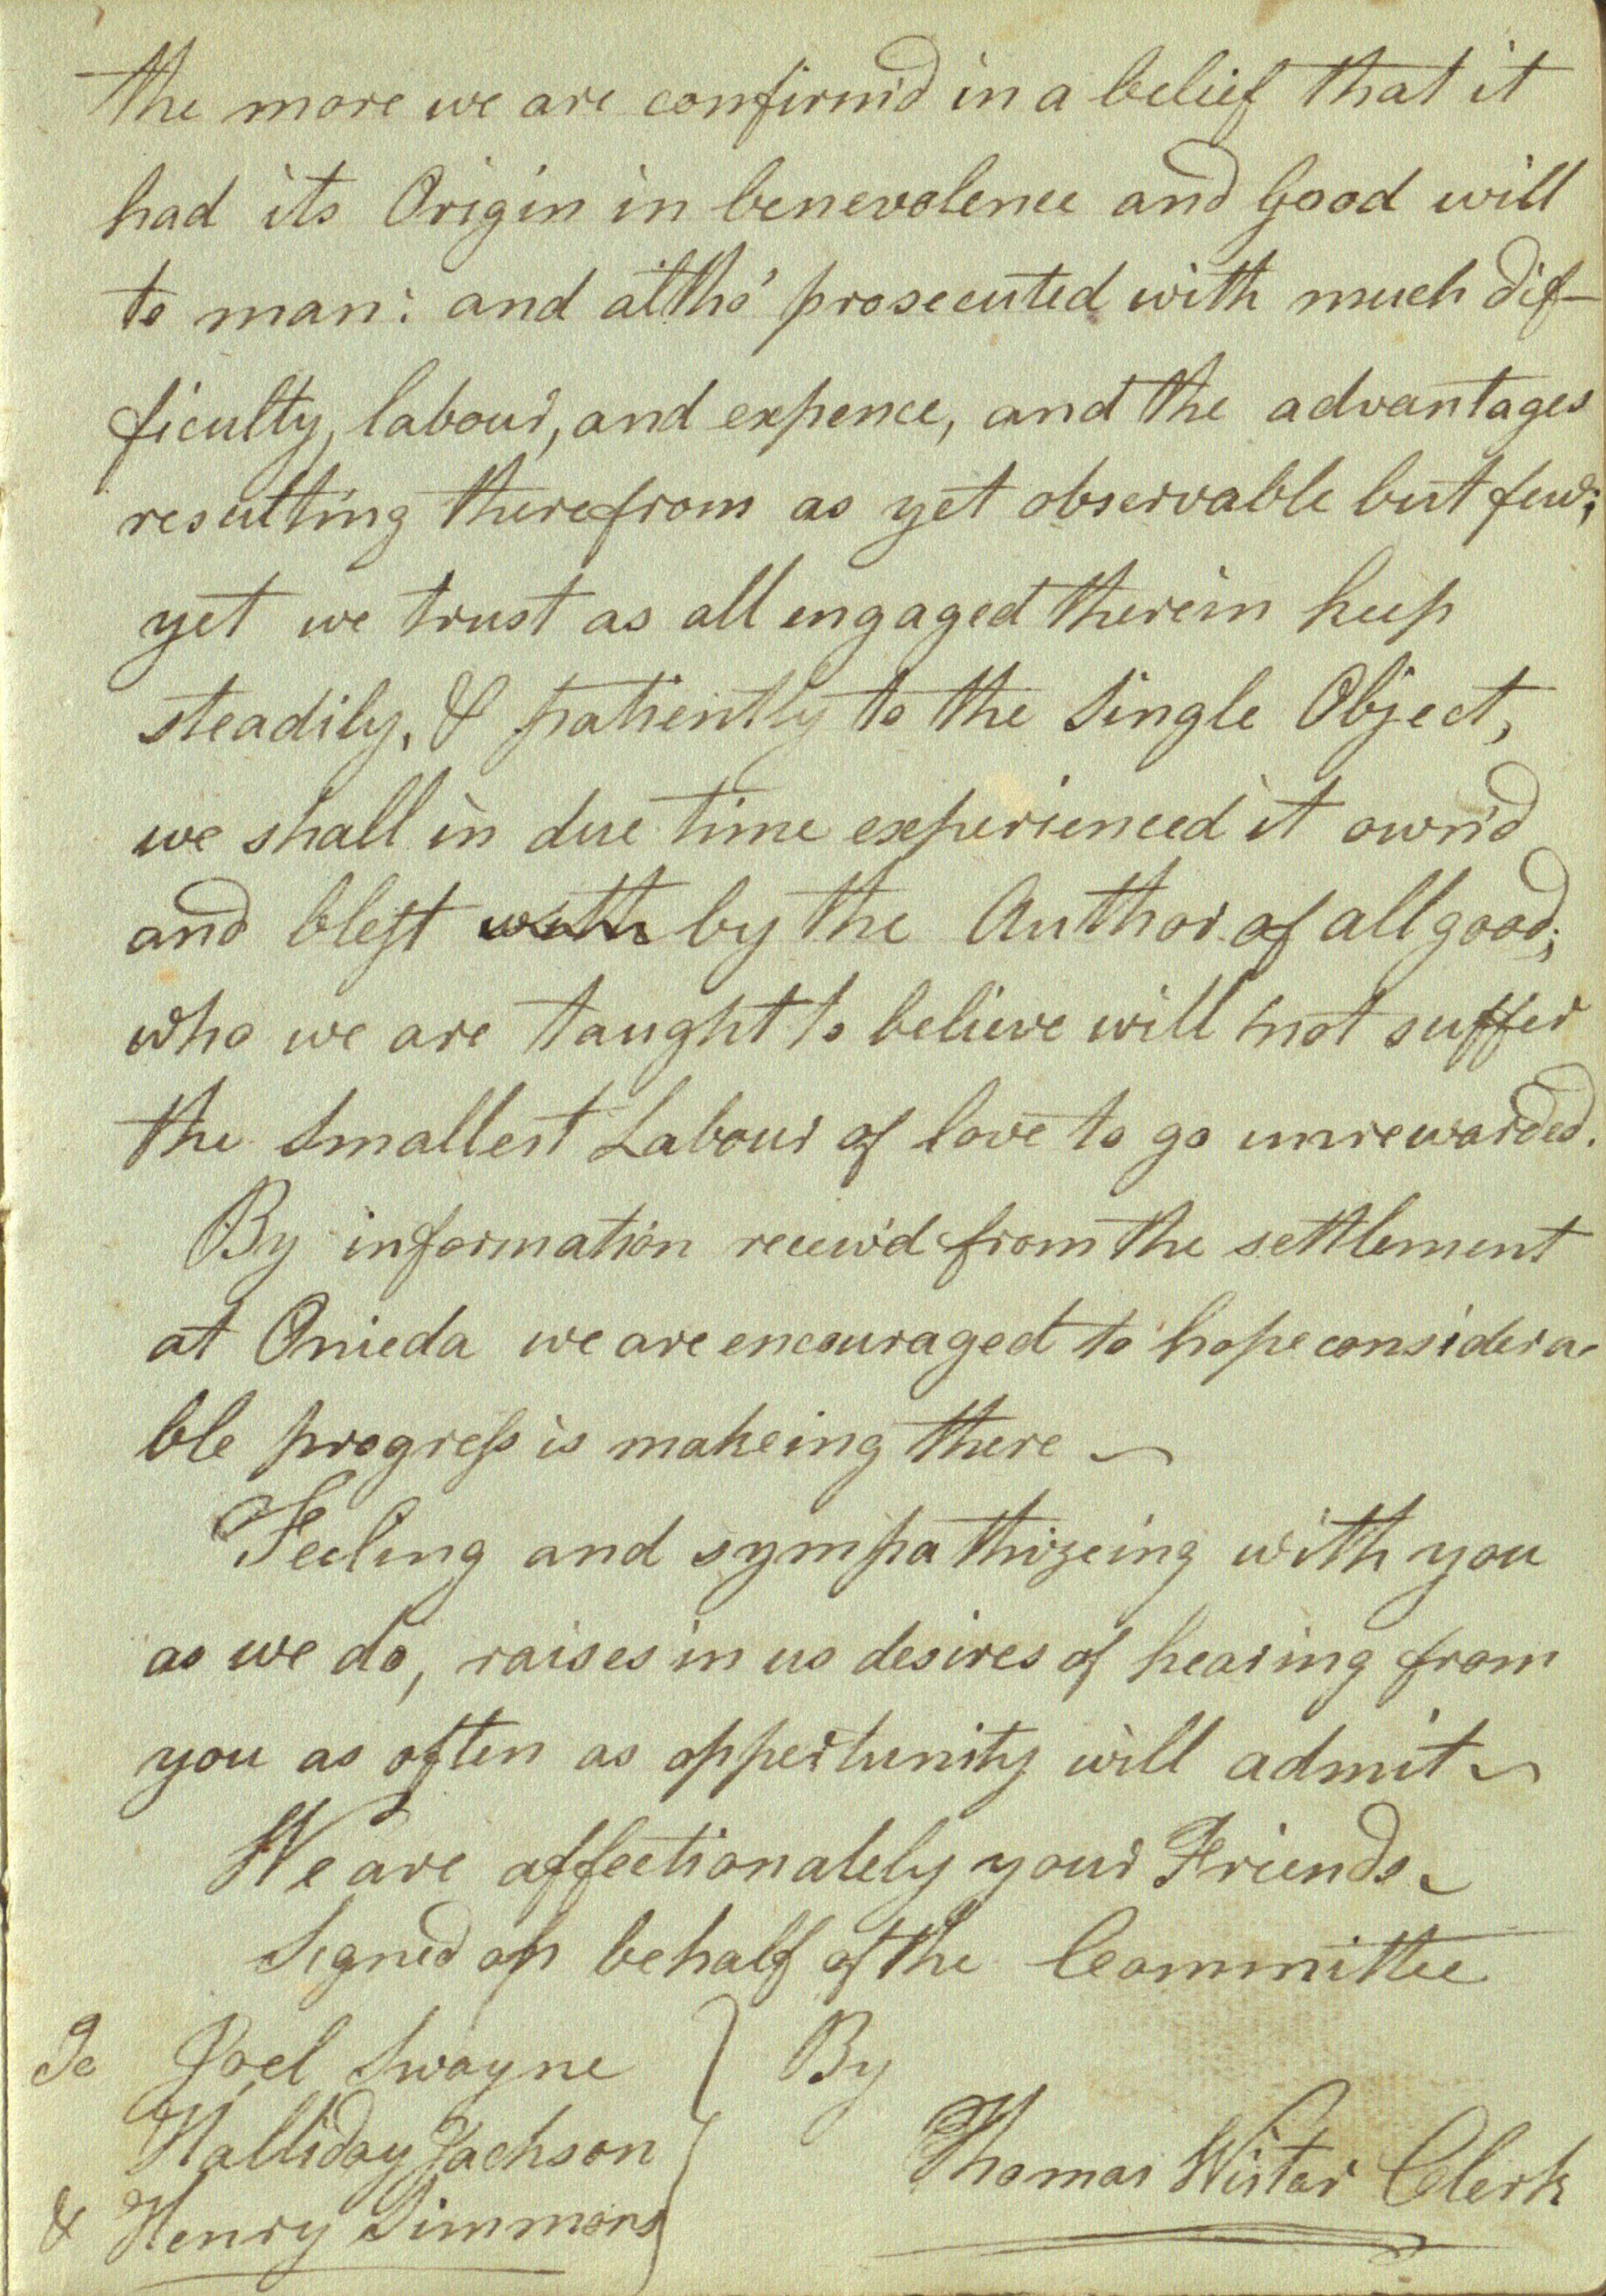 the more we are confirm'd in a belief that it
had its Origin in benevolence and Good will
to man: and altho' prosecuted with much dif-
ficulty, labour, and expence, and the advantages
resulting therefrom as yet observable but few;
yet we trust as all engaged therein keep
steadily, & patiently to the Single Object,
we shall in due time experienced it own'd
and blest with by the Author of all good;
who we are taught to believe will not suffer
the Smallest Labour of love to go unrewarded.
By information receiv'd from the settlement
at Onieda we are encouraged to hope considera-
ble progress is makeing there ~
Feeling and sympathizeing with you
as we do, raises in us desires of hearing from
you as often as oppertunity will admit ~
We are affectionately your Friends ~
Signed on behalf of the Committee
To Joel Swayne } By
Halliday Jackson
Thomas Wistar Clerk
& Henry Simmons